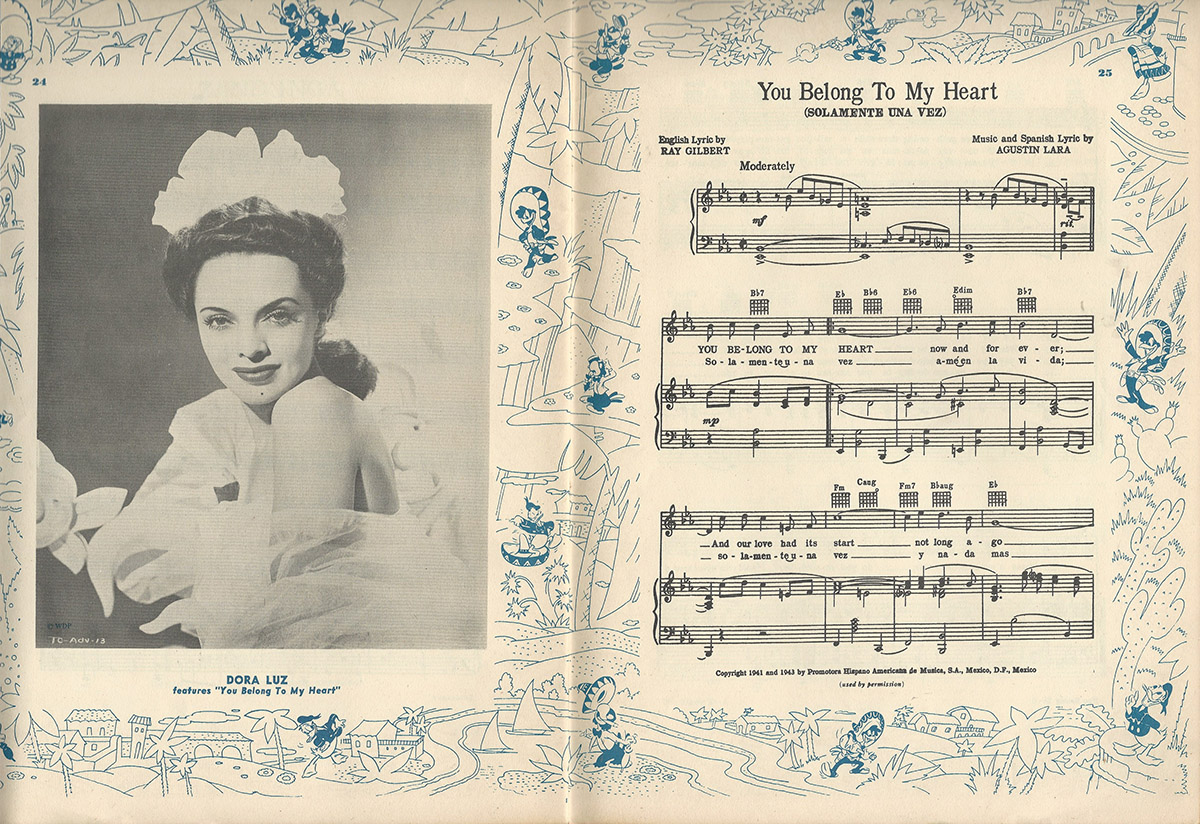 24
© WDP
TC-ADV-13
DORA LUZ
features "You Belong To My Heart"
25
You Belong To My Heart
(SOLAMENTE UNA VEZ)
English Lyric by
RAY GILBERT
Music and Spanish Lyric by
AGUSTIN LARA
Moderately
mf
rit.
Bb7 Eb Bb6 Eb6 Edim Bb7
YOU BE-LONG TO MY HEART now and for ev-er;
So-la-men-te u-na vez a-mé en la vi-da;
mp
Fm Caug Fm7 Bbaug Eb
And our love had its start not long a-go
so-la-men-te u-na vez y na-da mas
Copyright 1941 and 1943 by Promotora Hispano Americana de Musica, S.A., Mexico, D.F., Mexico
(used by permission)